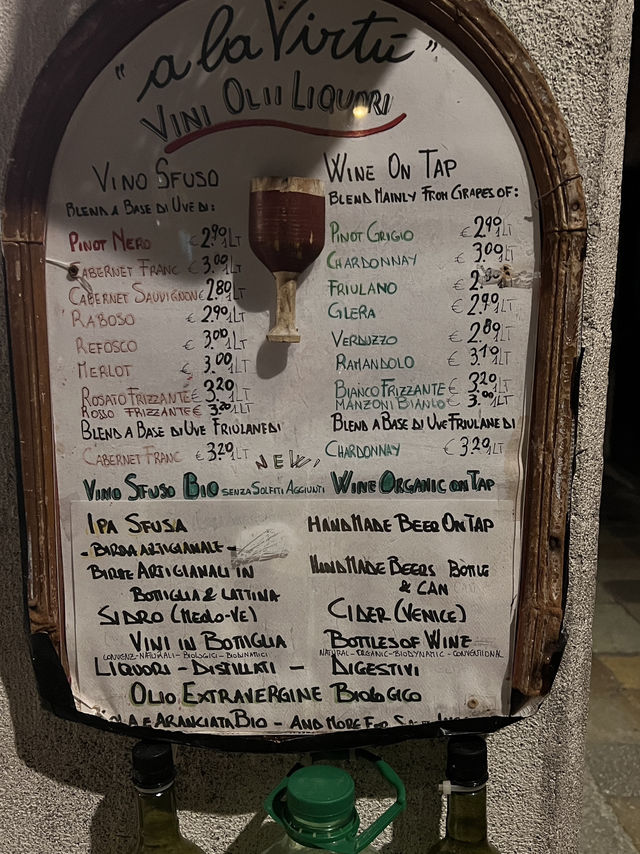 "a la Virtù"
VINI OLII LIQUORI
VINO SFUSO
BLEND A BASE DI UVE DI:
PINOT NERO € 2.90 1LT
CABERNET FRANC € 3.00 1LT
CABERNET SAUVIGNON € 2.80 1LT
RABOSO € 2.90 1LT
REFOSCO € 3.00 1LT
MERLOT € 3.00 1LT
ROSATO FRIZZANTE € 3.20 1LT
ROSSO FRIZZANTE € 3.20 1LT
BLEND A BASE DI UVE FRIULANE DI
CABERNET FRANC € 3.20 1LT
WINE ON TAP
BLEND MAINLY FROM GRAPES OF:
PINOT GRIGIO € 2.90 1LT
CHARDONNAY € 3.00 1LT
FRIULANO €
GLERA € 2.90 1LT
VERDUZZO € 2.80 1LT
RAMANDOLO € 3.10 1LT
BIANCO FRIZZANTE € 3.20 1LT
MANZONI BIANCO € 3.00 1LT
BLEND A BASE DI UVE FRIULANE DI
CHARDONNAY € 3.20 1LT
NEW
VINO SFUSO BIO SENZA SOLFITI AGGIUNTI WINE ORGANIC ON TAP
IPA SFUSA
- BIRRA ARTIGIANALE -
BIRRE ARTIGIANALI IN
BOTTIGLIA & LATTINA
SIDRO (MEOLO-VE)
VINI IN BOTTIGLIA
CONVENZ-NATURALI-BIOLOGICI-BIODINATICI
HANDMADE BEER ON TAP
HANDMADE BEERS BOTTLE
& CAN
CIDER (VENICE)
BOTTLES OF WINE
NATURAL-ORGANIC-BIODYNATIC-CONVENTIONAL
LIQUORI - DISTILLATI - DIGESTIVI
OLIO EXTRAVERGINE BIOLOGICO
E ARANCIATA BIO - AND MORE FOR